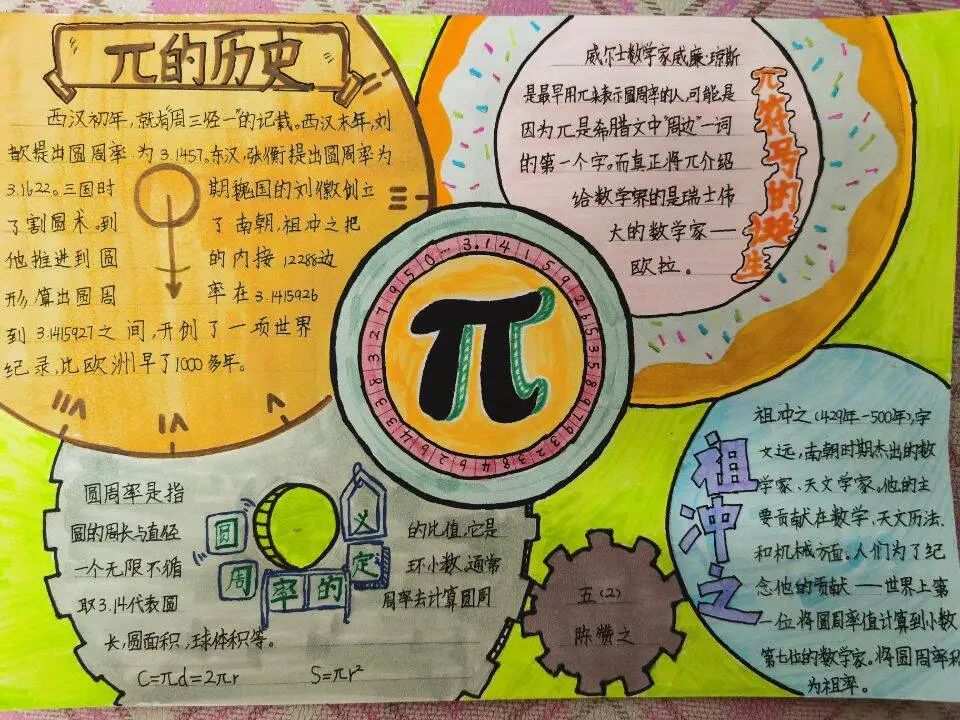 π的历史
西汉初年，就有"周三径一"的记载。西汉末年，刘
歆提出圆周率为3.1457。东汉，张衡提出圆周率为
3.1622。三国时期魏国的刘徽创立
了割圆术。到了南朝，祖冲之把
他推进到圆的内接12288边
形，算出圆周率在3.1415926
到3.1415927之间，开创了一项世界
纪录，比欧洲早了1000多年。
π符号的诞生
威尔士数学家威廉·琼斯
是最早用π来表示圆周率的人，可能是
因为π是希腊文中"周边"一词
的第一个字。而真正将π介绍
给数学界的是瑞士伟
大的数学家——
欧拉。
π
圆周率的定义
圆周率是指
圆的周长与直径的比值，它是
一个无限不循环小数。通常
取3.14代表圆周率去计算圆周
长，圆面积，球体积等。
C=πd=2πr S=πr²
五（2）
陈赞之
祖冲之
祖冲之（429年-500年），字
文远，南朝时期杰出的数
学家、天文学家。他的主
要贡献在数学、天文历法、
和机械方面。人们为了纪
念他的贡献——世界上第
一位将圆周率值计算到小数
第七位的数学家。将圆周率称
为祖率。